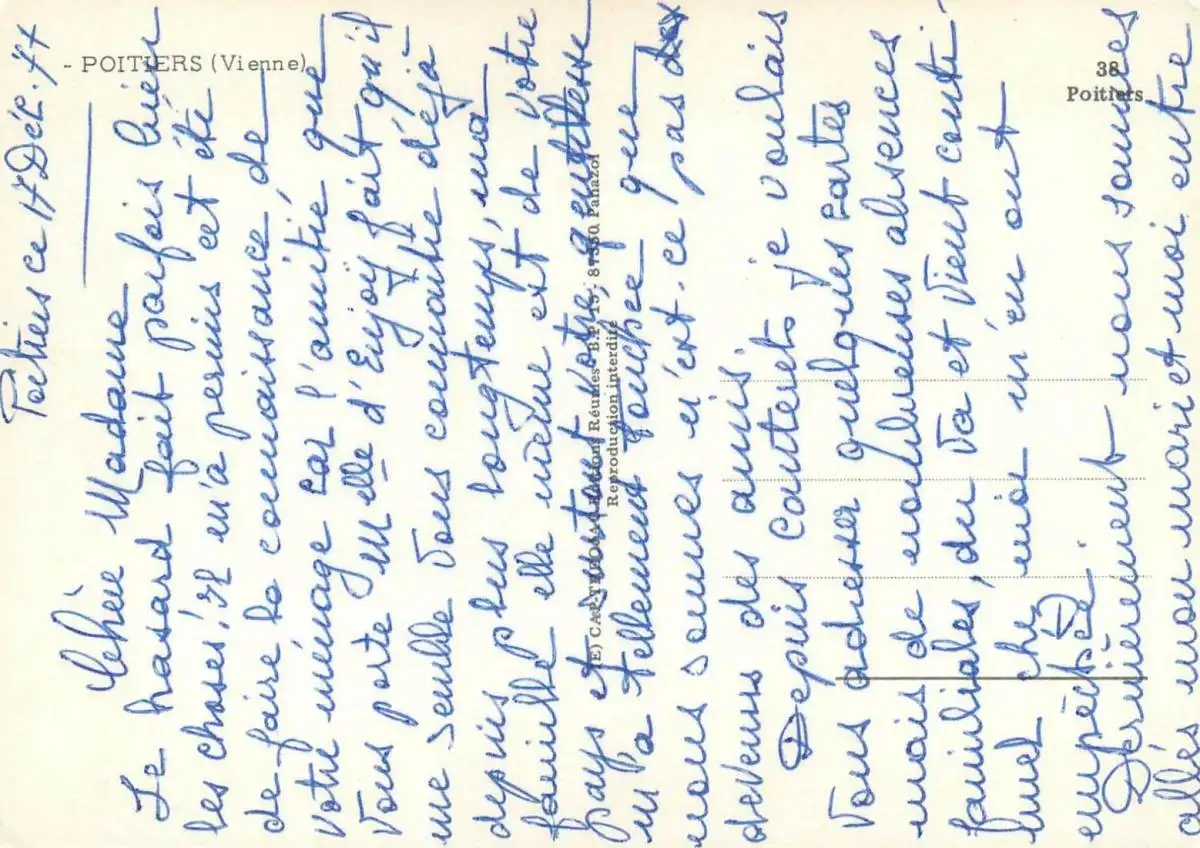 - POITIERS (Vienne)
38
Poitiers
(E) CAP-THEOJAC Editions Réunies - B.P. 15 - 87350 Panazol
Reproduction interdite
Poitiers ce 17 Déc. 77
Chère Madame
Le hasard fait parfois bien
les choses! Il m'a permis cet été
de faire la connaissance de
votre ménage car l'amitié que
vous porte Melle d'Enjoy fait qu'il
me semble vous connaître déjà
depuis plus longtemps, ma
famille elle même est de votre
pays et surtout votre gentillesse
m'a tellement touchée que
nous sommes n'est-ce pas
devenus des amis
Depuis Cauterets je voulais
vous adresser quelques cartes
mais de nombreuses absences
familiales, du va et vient conti-
nuel chez moi m'en ont
empêchée
Dernièrement nous sommes
allés mon mari et moi entre